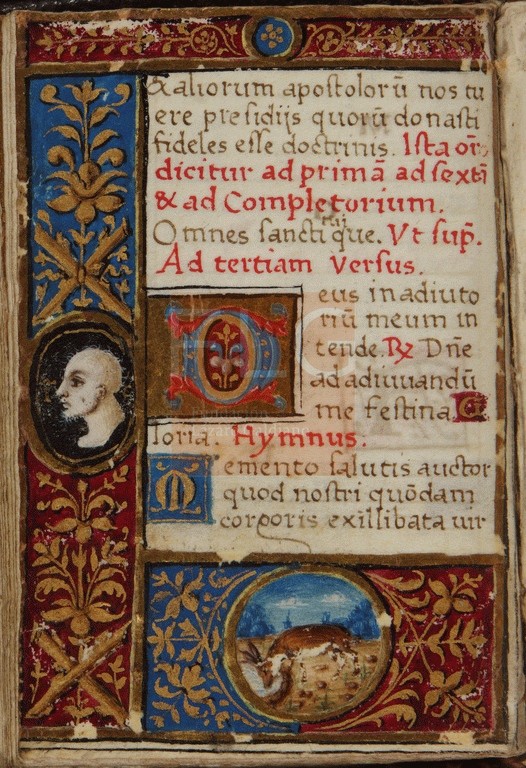 & aliorum apostolorū nos tu
ere presidijs quorū donasti
fideles esse doctrinis. Ista or̄
dicitur ad primā ad sextā
& ad Completorium.
Omnes sancti tui que. Vt sup̄.
Ad tertiam Versus.
Deus in adiuto
riū meum in
tende. ℞ Dn̄e
ad adiuuandū
me festina. G
loria. Hymnus.
Memento salutis auctor
quod nostri quōdam
corporis ex illibata uir